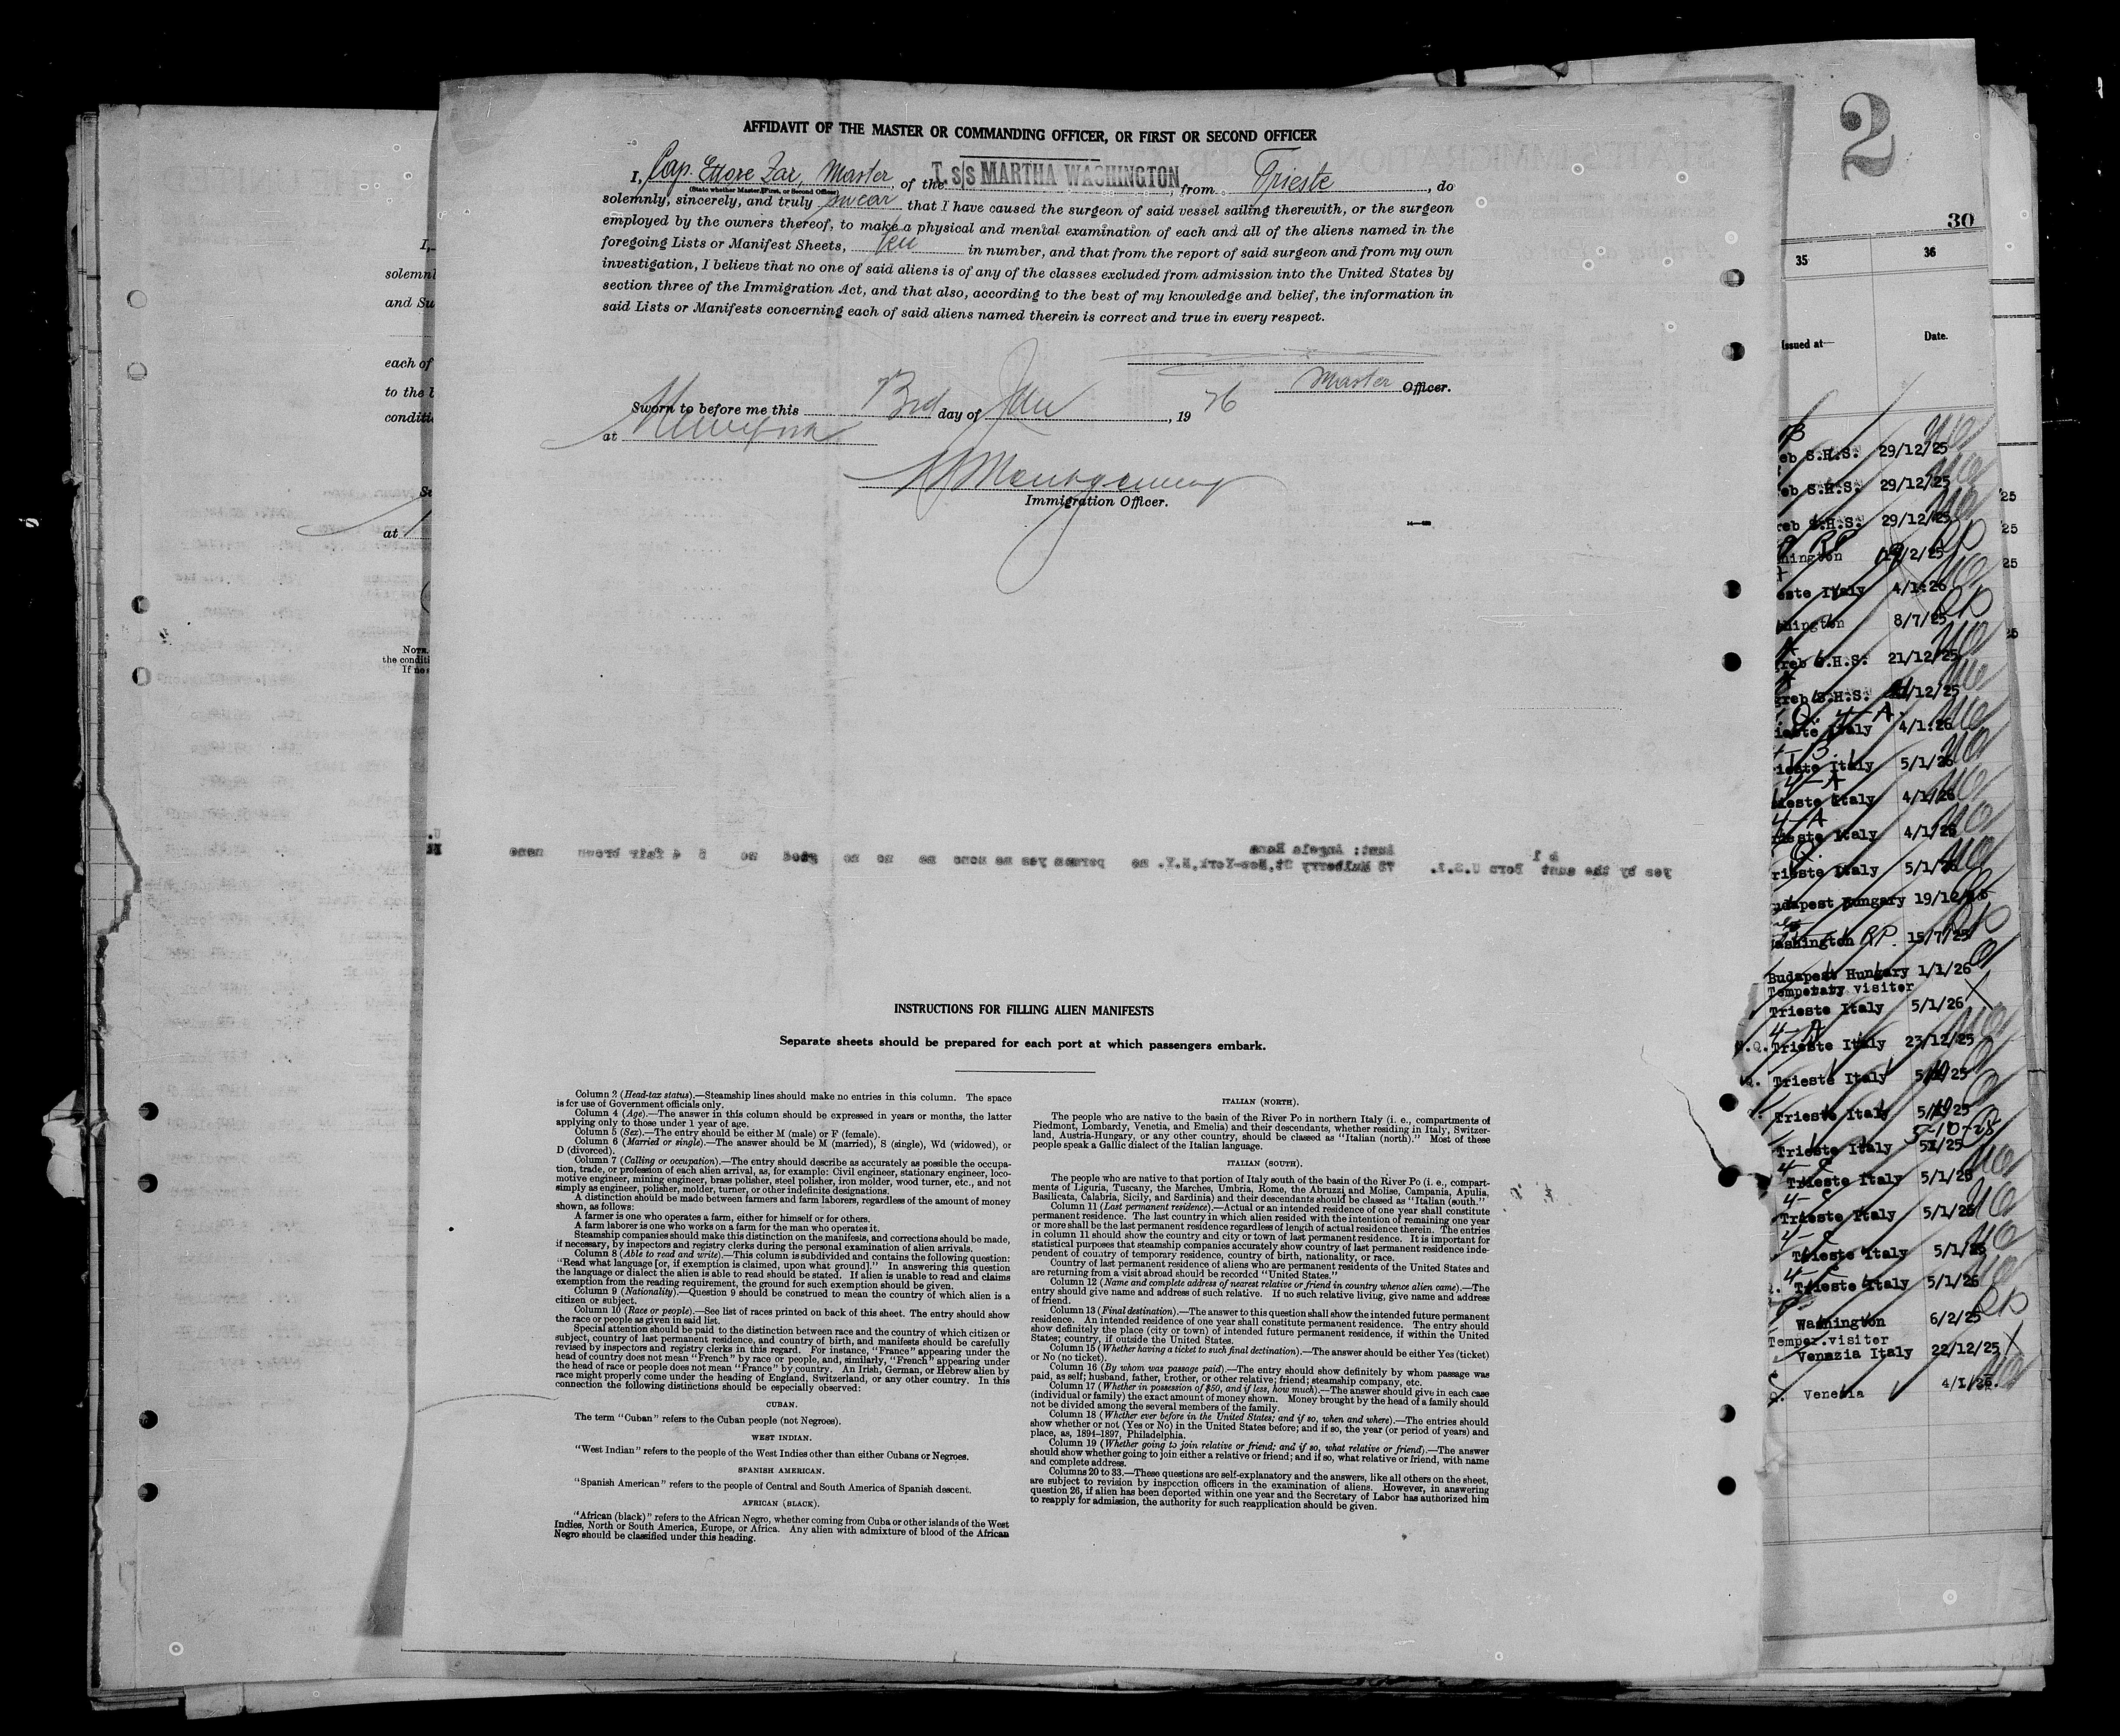 AFFIDAVIT OF THE MASTER OR COMMANDING OFFICER, OR FIRST OR SECOND OFFICER
I, Cap. Ettore Zar, Master, of the T. s/s MARTHA WASHINGTON, from Trieste, do
(State whether Master, First, or Second Officer)
solemnly, sincerely, and truly swear that I have caused the surgeon of said vessel sailing therewith, or the surgeon
employed by the owners thereof, to make a physical and mental examination of each and all of the aliens named in the
foregoing Lists or Manifest Sheets, ten in number, and that from the report of said surgeon and from my own
investigation, I believe that no one of said aliens is of any of the classes excluded from admission into the United States by
section three of the Immigration Act, and that also, according to the best of my knowledge and belief, the information in
said Lists or Manifests concerning each of said aliens named therein is correct and true in every respect.
Master Officer.
Sworn to before me this 23rd day of Jan, 1926
at New York
Montgomery
Immigration Officer.
Aunt: Angela Hans
yes by the aunt Born U.S.A. 73 Mulberry St, New-York, N.Y. no perman yes no no no no no good no 5 4 fair brown none
INSTRUCTIONS FOR FILLING ALIEN MANIFESTS
Separate sheets should be prepared for each port at which passengers embark.
Column 2 (Head-tax status).—Steamship lines should make no entries in this column. The space
is for use of Government officials only.
Column 4 (Age).—The answer in this column should be expressed in years or months, the latter
applying only to those under 1 year of age.
Column 5 (Sex).—The entry should be either M (male) or F (female).
Column 6 (Married or single).—The answer should be M (married), S (single), Wd (widowed), or
D (divorced).
Column 7 (Calling or occupation).—The entry should describe as accurately as possible the occupa-
tion, trade, or profession of each alien arrival, as, for example: Civil engineer, stationary engineer, loco-
motive engineer, mining engineer, brass polisher, steel polisher, iron molder, wood turner, etc., and not
simply as engineer, polisher, molder, turner, or other indefinite designations.
A distinction should be made between farmers and farm laborers, regardless of the amount of money
shown, as follows:
A farmer is one who operates a farm, either for himself or for others.
A farm laborer is one who works on a farm for the man who operates it.
Steamship companies should make this distinction on the manifests, and corrections should be made,
if necessary, by inspectors and registry clerks during the personal examination of alien arrivals.
Column 8 (Able to read and write).—This column is subdivided and contains the following question:
"Read what language [or, if exemption is claimed, upon what ground]." In answering this question
the language or dialect the alien is able to read should be stated. If alien is unable to read and claims
exemption from the reading requirement, the ground for such exemption should be given.
Column 9 (Nationality).—Question 9 should be construed to mean the country of which alien is a
citizen or subject.
Column 10 (Race or people).—See list of races printed on back of this sheet. The entry should show
the race or people as given in said list.
Special attention should be paid to the distinction between race and the country of which citizen or
subject, country of last permanent residence, and country of birth, and manifests should be carefully
revised by inspectors and registry clerks in this regard. For instance, "France" appearing under the
head of country does not mean "French" by race or people, and, similarly, "French" appearing under
the head of race or people does not mean "France" by country. An Irish, German, or Hebrew alien by
race might properly come under the heading of England, Switzerland, or any other country. In this
connection the following distinctions should be especially observed:
CUBAN.
The term "Cuban" refers to the Cuban people (not Negroes).
WEST INDIAN.
"West Indian" refers to the people of the West Indies other than either Cubans or Negroes.
SPANISH AMERICAN.
"Spanish American" refers to the people of Central and South America of Spanish descent.
AFRICAN (BLACK).
"African (black)" refers to the African Negro, whether coming from Cuba or other islands of the West
Indies, North or South America, Europe, or Africa. Any alien with admixture of blood of the African
Negro should be classified under this heading.
ITALIAN (NORTH).
The people who are native to the basin of the River Po in northern Italy (i. e., compartments of
Piedmont, Lombardy, Venetia, and Emelia) and their descendants, whether residing in Italy, Switzer-
land, Austria-Hungary, or any other country, should be classed as "Italian (north)." Most of these
people speak a Gallic dialect of the Italian language.
ITALIAN (SOUTH).
The people who are native to that portion of Italy south of the basin of the River Po (i. e., compart-
ments of Liguria, Tuscany, the Marches, Umbria, Rome, the Abruzzi and Molise, Campania, Apulia,
Basilicata, Calabria, Sicily, and Sardinia) and their descendants should be classed as "Italian (south."
Column 11 (Last permanent residence).—Actual or an intended residence of one year shall constitute
permanent residence. The last country in which alien resided with the intention of remaining one year
or more shall be the last permanent residence regardless of length of actual residence therein. The entries
in column 11 should show the country and city or town of last permanent residence. It is important for
statistical purposes that steamship companies accurately show country of last permanent residence inde-
pendent of country of temporary residence, country of birth, nationality, or race.
Country of last permanent residence of aliens who are permanent residents of the United States and
are returning from a visit abroad should be recorded "United States."
Column 12 (Name and complete address of nearest relative or friend in country whence alien came).—The
entry should give name and address of such relative. If no such relative living, give name and address
of friend.
Column 13 (Final destination).—The answer to this question shall show the intended future permanent
residence. An intended residence of one year shall constitute permanent residence. The entry should
show definitely the place (city or town) of intended future permanent residence, if within the United
States; country, if outside the United States.
Column 15 (Whether having a ticket to such final destination).—The answer should be either Yes (ticket)
or No (no ticket).
Column 16 (By whom was passage paid).—The entry should show definitely by whom passage was
paid, as self; husband, father, brother, or other relative; friend; steamship company, etc.
Column 17 (Whether in possession of $50, and if less, how much).—The answer should give in each case
(individual or family) the exact amount of money shown. Money brought by the head of a family should
not be divided among the several members of the family.
Column 18 (Whether ever before in the United States; and if so, when and where).—The entries should
show whether or not (Yes or No) in the United States before; and if so, the year (or period of years) and
place, as, 1894-1897, Philadelphia.
Column 19 (Whether going to join relative or friend; and if so, what relative or friend).—The answer
should show whether going to join either a relative or friend; and if so, what relative or friend, with name
and complete address.
Columns 20 to 33.—These questions are self-explanatory and the answers, like all others on the sheet,
are subject to revision by inspection officers in the examination of aliens. However, in answering
question 26, if alien has been deported within one year and the Secretary of Labor has authorized him
to reapply for admission, the authority for such reapplication should be given.
I,
solemnl
and Su
each of
to the b
conditi
at
NOTE.
the conditi
If no
2
30
35 36
Issued at— Date.
eb S.H.S. 29/12/25
eb S.H.S. 29/12/25
reb S.H.S. 29/12/25
hington 19/2/25
este Italy 4/1/26
hington 8/7/25
greb S.H.S. 21/12/25
greb S.H.S. 21/12/25
ieste Italy 4/1/26
rieste Italy 5/1/26
ieste Italy 4/1/26
rieste Italy 4/1/26
rieste Italy 5/1/26
udapest Hungary 19/12/25
ashington RP. 15/7/25
Budapest Hungary 1/1/26
Temporary visitor
Trieste Italy 5/1/26
4-A
Trieste Italy 23/12/25
Trieste Italy
Trieste Italy
5-10-25
Trieste Italy
Trieste Italy 5/1/26
Trieste Italy 5/1/26
Trieste Italy 5/1/26
Trieste Italy 5/1/26
Washington 6/2/25
Temper.visitor
Venazia Italy 22/12/25
Venesia 4/1/26.